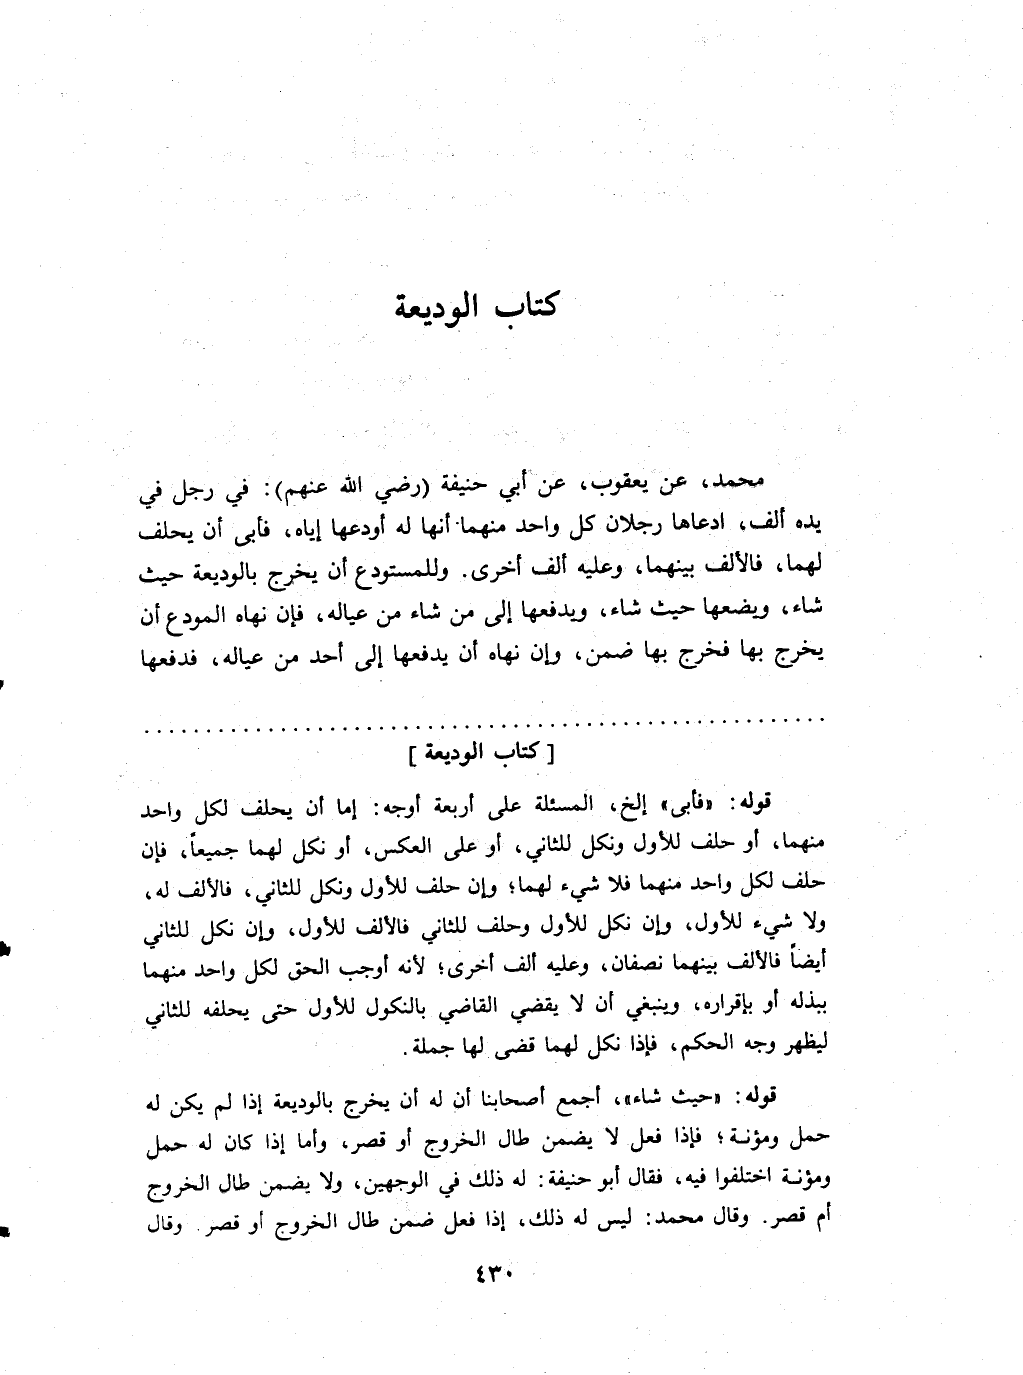 كتاب الوديعة
محمد، عن يعقوب، عن أبي حنيفة (رضي الله عنهم): في رجل في
يده ألف، ادعاها رجلان كل واحد منهما أنها له أودعها إياه، فأبى أن يحلف
لهما، فالألف بينهما، وعليه ألف أخرى. وللمستودع أن يخرج بالوديعة حيث
شاء، ويضعها حيث شاء، ويدفعها إلى من شاء من عياله، فإن نهاه المودع أن
يخرج بها فخرج بها ضمن، وإن نهاه أن يدفعها إلى أحد من عياله، فدفعها
[ كتاب الوديعة ]
قوله: «فأبى» إلخ، المسئلة على أربعة أوجه: إما أن يحلف لكل واحد
منهما، أو حلف للأول ونكل للثاني، أو على العكس، أو نكل لهما جميعاً، فإن
حلف لكل واحد منهما فلا شيء لهما؛ وإن حلف للأول ونكل للثاني، فالألف له،
ولا شيء للأول، وإن نكل للأول وحلف للثاني فالألف للأول، وإن نكل للثاني
أيضاً فالألف بينهما نصفان، وعليه ألف أخرى؛ لأنه أوجب الحق لكل واحد منهما
ببذله أو بإقراره، وينبغي أن لا يقضي القاضي بالنكول للأول حتى يحلفه للثاني
ليظهر وجه الحكم، فإذا نكل لهما قضى لها جملة.
قوله: «حيث شاء»، أجمع أصحابنا أن له أن يخرج بالوديعة إذا لم يكن له
حمل ومؤنة؛ فإذا فعل لا يضمن طال الخروج أو قصر، وأما إذا كان له حمل
ومؤنة اختلفوا فيه، فقال أبو حنيفة: له ذلك في الوجهين، ولا يضمن طال الخروج
أم قصر. وقال محمد: ليس له ذلك، إذا فعل ضمن طال الخروج أو قصر. وقال
٤٣٠